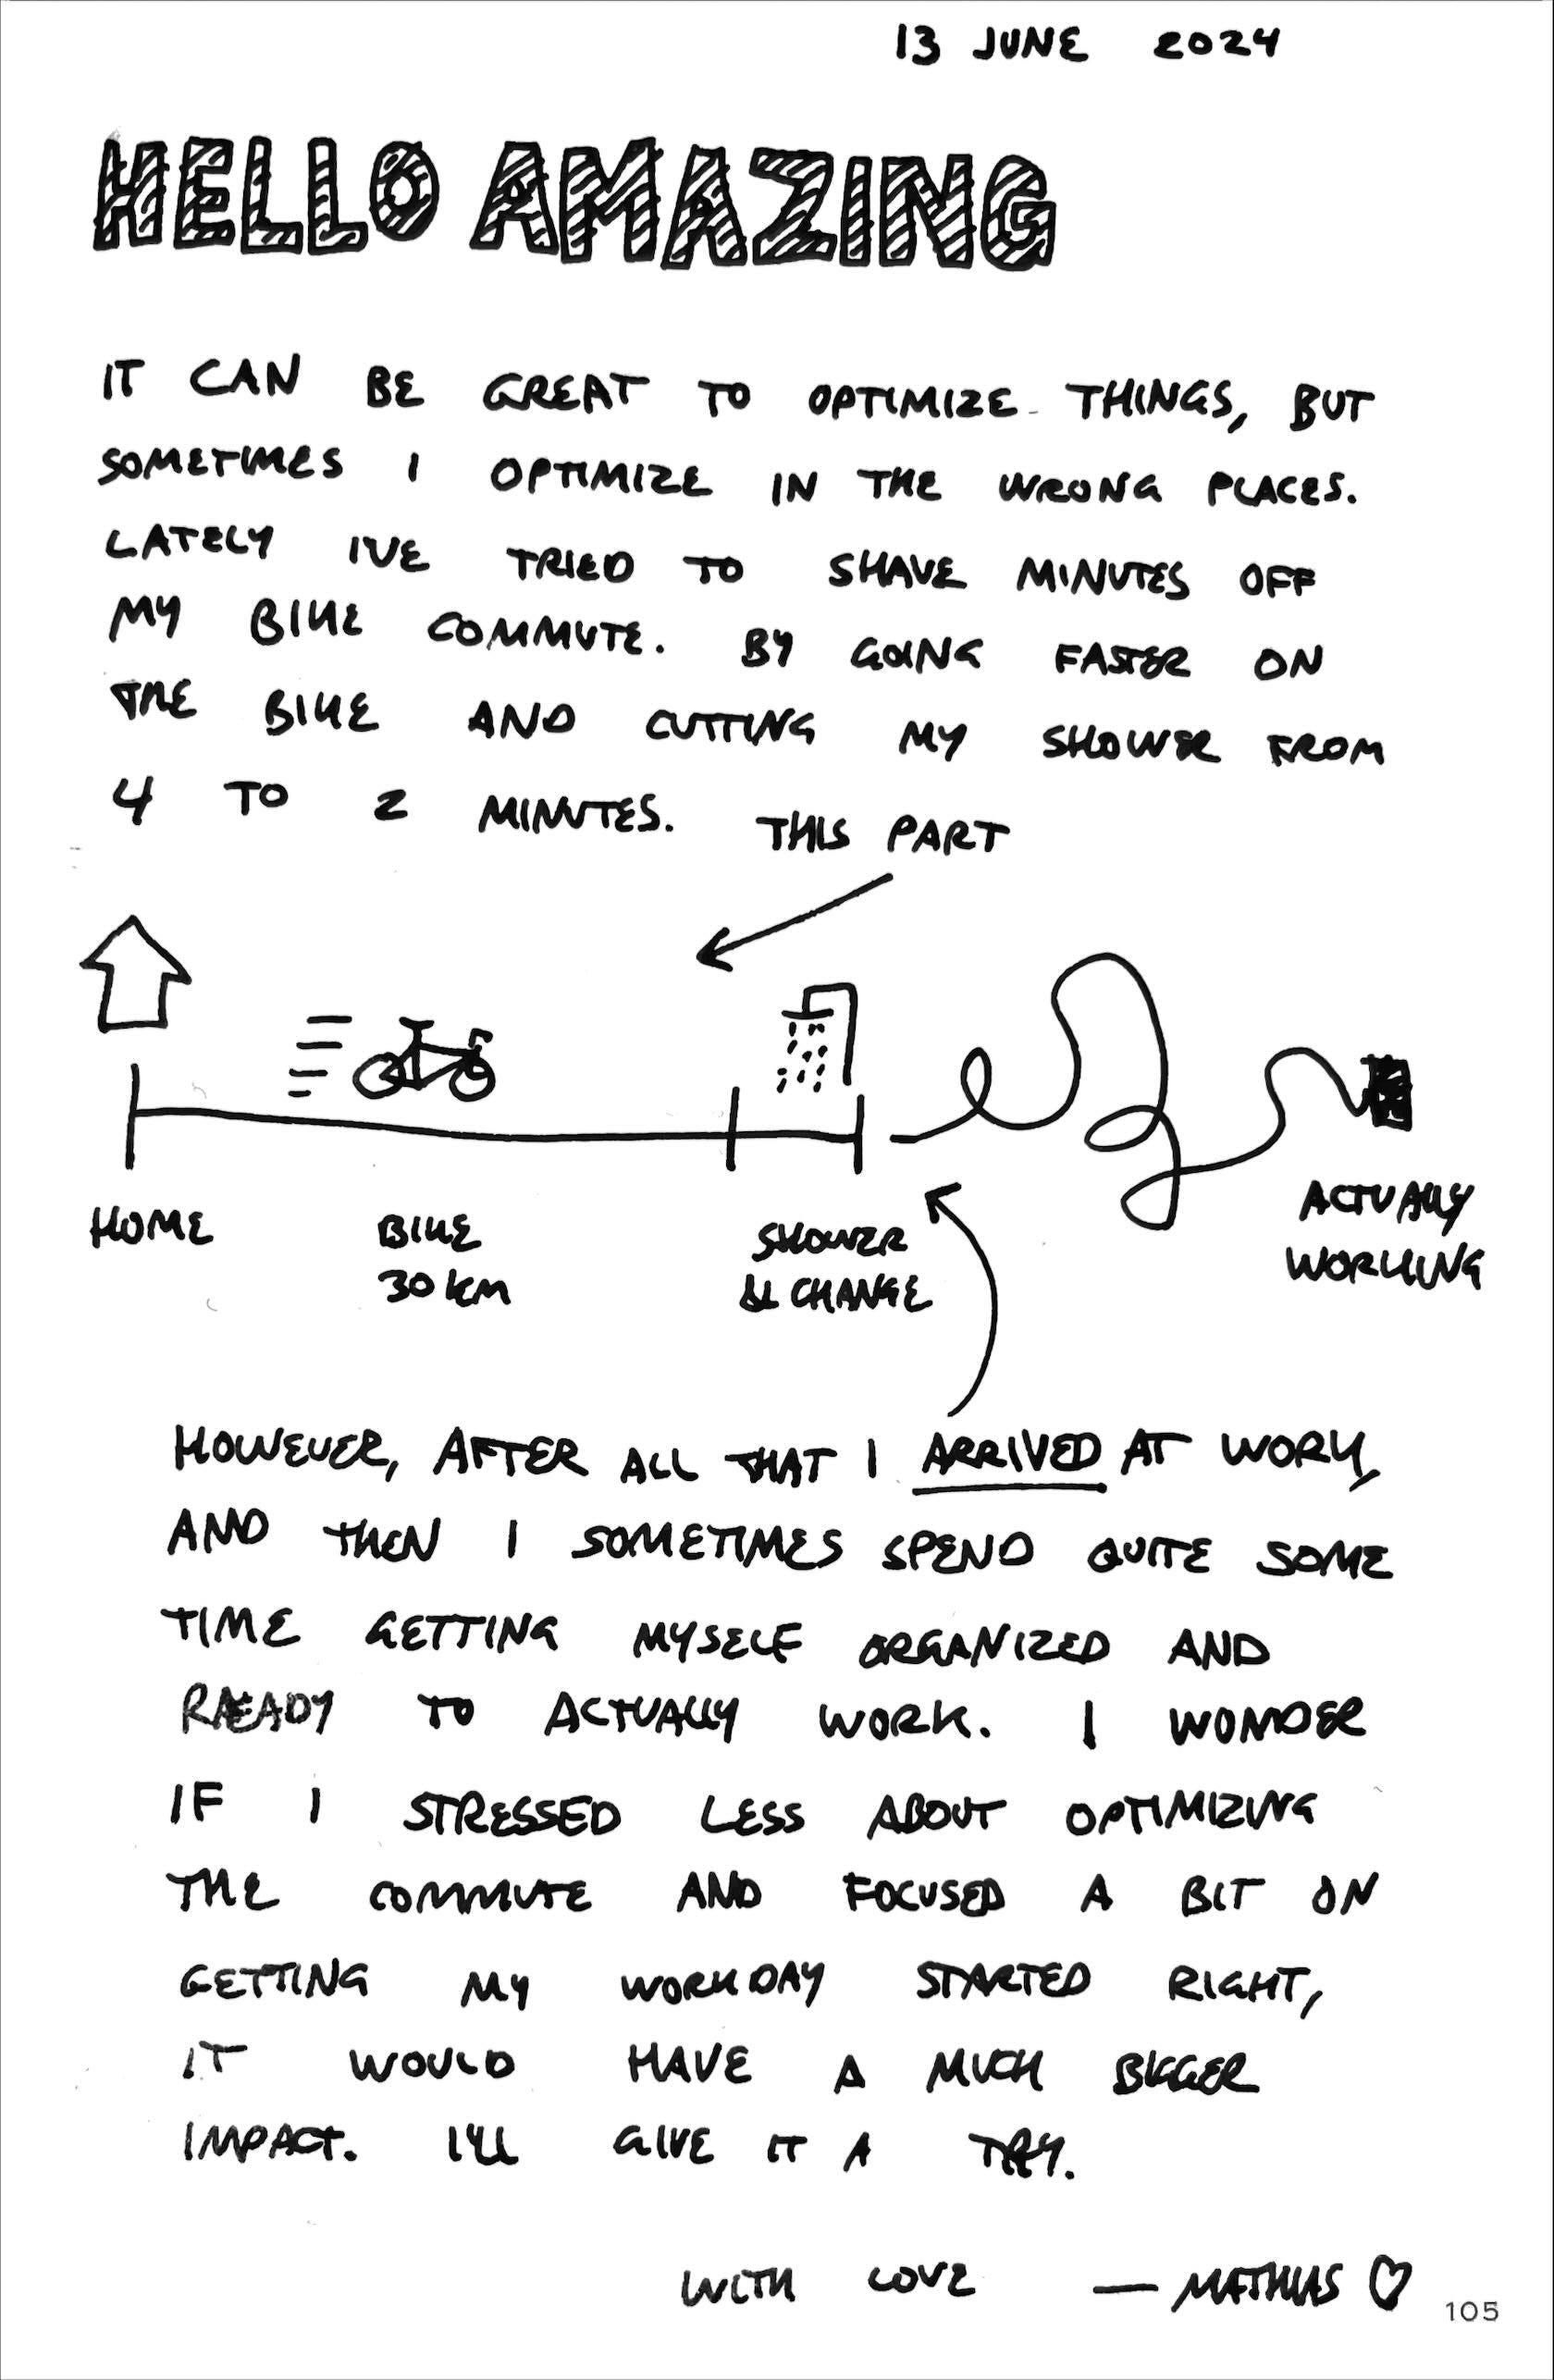 13 JUNE 2024
HELLO AMAZING
IT CAN BE GREAT TO OPTIMIZE THINGS, BUT
SOMETIMES I OPTIMIZE IN THE WRONG PLACES.
LATELY I'VE TRIED TO SHAVE MINUTES OFF
MY BIKE COMMUTE. BY GOING FASTER ON
THE BIKE AND CUTTING MY SHOWER FROM
4 TO 2 MINUTES. THIS PART
HOME
BIKE
30 KM
SHOWER
& CHANGE
ACTUALLY
WORKING
HOWEVER, AFTER ALL THAT I ARRIVED AT WORK,
AND THEN I SOMETIMES SPEND QUITE SOME
TIME GETTING MYSELF ORGANIZED AND
READY TO ACTUALLY WORK. I WONDER
IF I STRESSED LESS ABOUT OPTIMIZING
THE COMMUTE AND FOCUSED A BIT ON
GETTING MY WORKDAY STARTED RIGHT,
IT WOULD HAVE A MUCH BIGGER
IMPACT. I'LL GIVE IT A TRY.
WITH LOVE — MATHIAS ♡
105